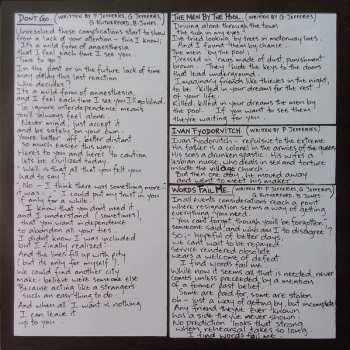 DON'T GO (WRITTEN BY P. JEFFERIES, G. JEFFERIES, G. RUTHERFORD, B. JONES)
Unresolved these complications start to show
from a lack of your attention - this I know;
It's a mild form of anaesthesia
that I feel each time I see you
Time to go
In the past or in the future, lack of time
may delay this last reaction
Who decides?
It's a mild form of anaesthesia
and I feel each time I see you I'll go blind.
To ignore interdependence means
you'll always feel alone
Never mind, just accept it
and be safely on your own -
More better off, better distant
So much easier this way.
Here's to you and here's to caution
lets be civilized today.
"Well is that all that you felt you
had to say?"
"No -- I think there was something more
it was - I could put my trust in you
if only for a while -
I know that you don't need it
and I understand (sometimes),
that you want independence
to abandon all your ties
I didn't know I was included
'til I finally realized
And the lines fill up with pity
but its only for myself.
We could find another city
make-believe with someone else
Because acting like strangers
such an easy thing to do
And when all I want is nothing
I can leave it
up to you.
THE MEN BY THE POOL (WRITTEN BY G. JEFFERIES)
Driving along through the town
the sun in my eyes
I've lived looking by trees in motorway lanes
And I found them by chance
The men by the pool
Dressed in rags made of dust, punishment
brown. They hide the keys to the doors
that lead underground
Imaginary friends like thieves in the night,
to be killed in your dreams for the rest
of your life.
Killed, killed in your dreams the men by
the pool. If you want to see them
they're waiting for you.
IVAN FYODORVITCH (WRITTEN BY P. JEFFERIES)
Ivan Fyodorvitch - repulsive to the extreme
His father is a colonel in the armies of the queen
His son a drunken gladstic. His wife's a
lesbian nurse, who deals in sex and torture
inside the village church
But then one day, he moved away
and went to meet his maker.
WORDS FAIL ME (WRITTEN BY P. JEFFERIES, G. JEFFERIES, G. RUTHERFORD, B. JONES)
In all events consideration reach a point
where resignation seems a way of getting
everything you need.
You can't forget though you'll be forgotten
someone said (and who am I to disagree?)
So - hopeful of better days
we can't wait to be repaid.
Service rendered obsolete
wears a welcome of defeat
I find words fail me
While now it seems all that is needed, never
comes unless preceded, by a mention
of a former past belief
Some are good for some, are stolen
oh - just a way of getting by, but incomplete
Any friend they've ever known
has a side they've never shown
No prediction looks that strong
when rehearsal takes so long
I find words fail me